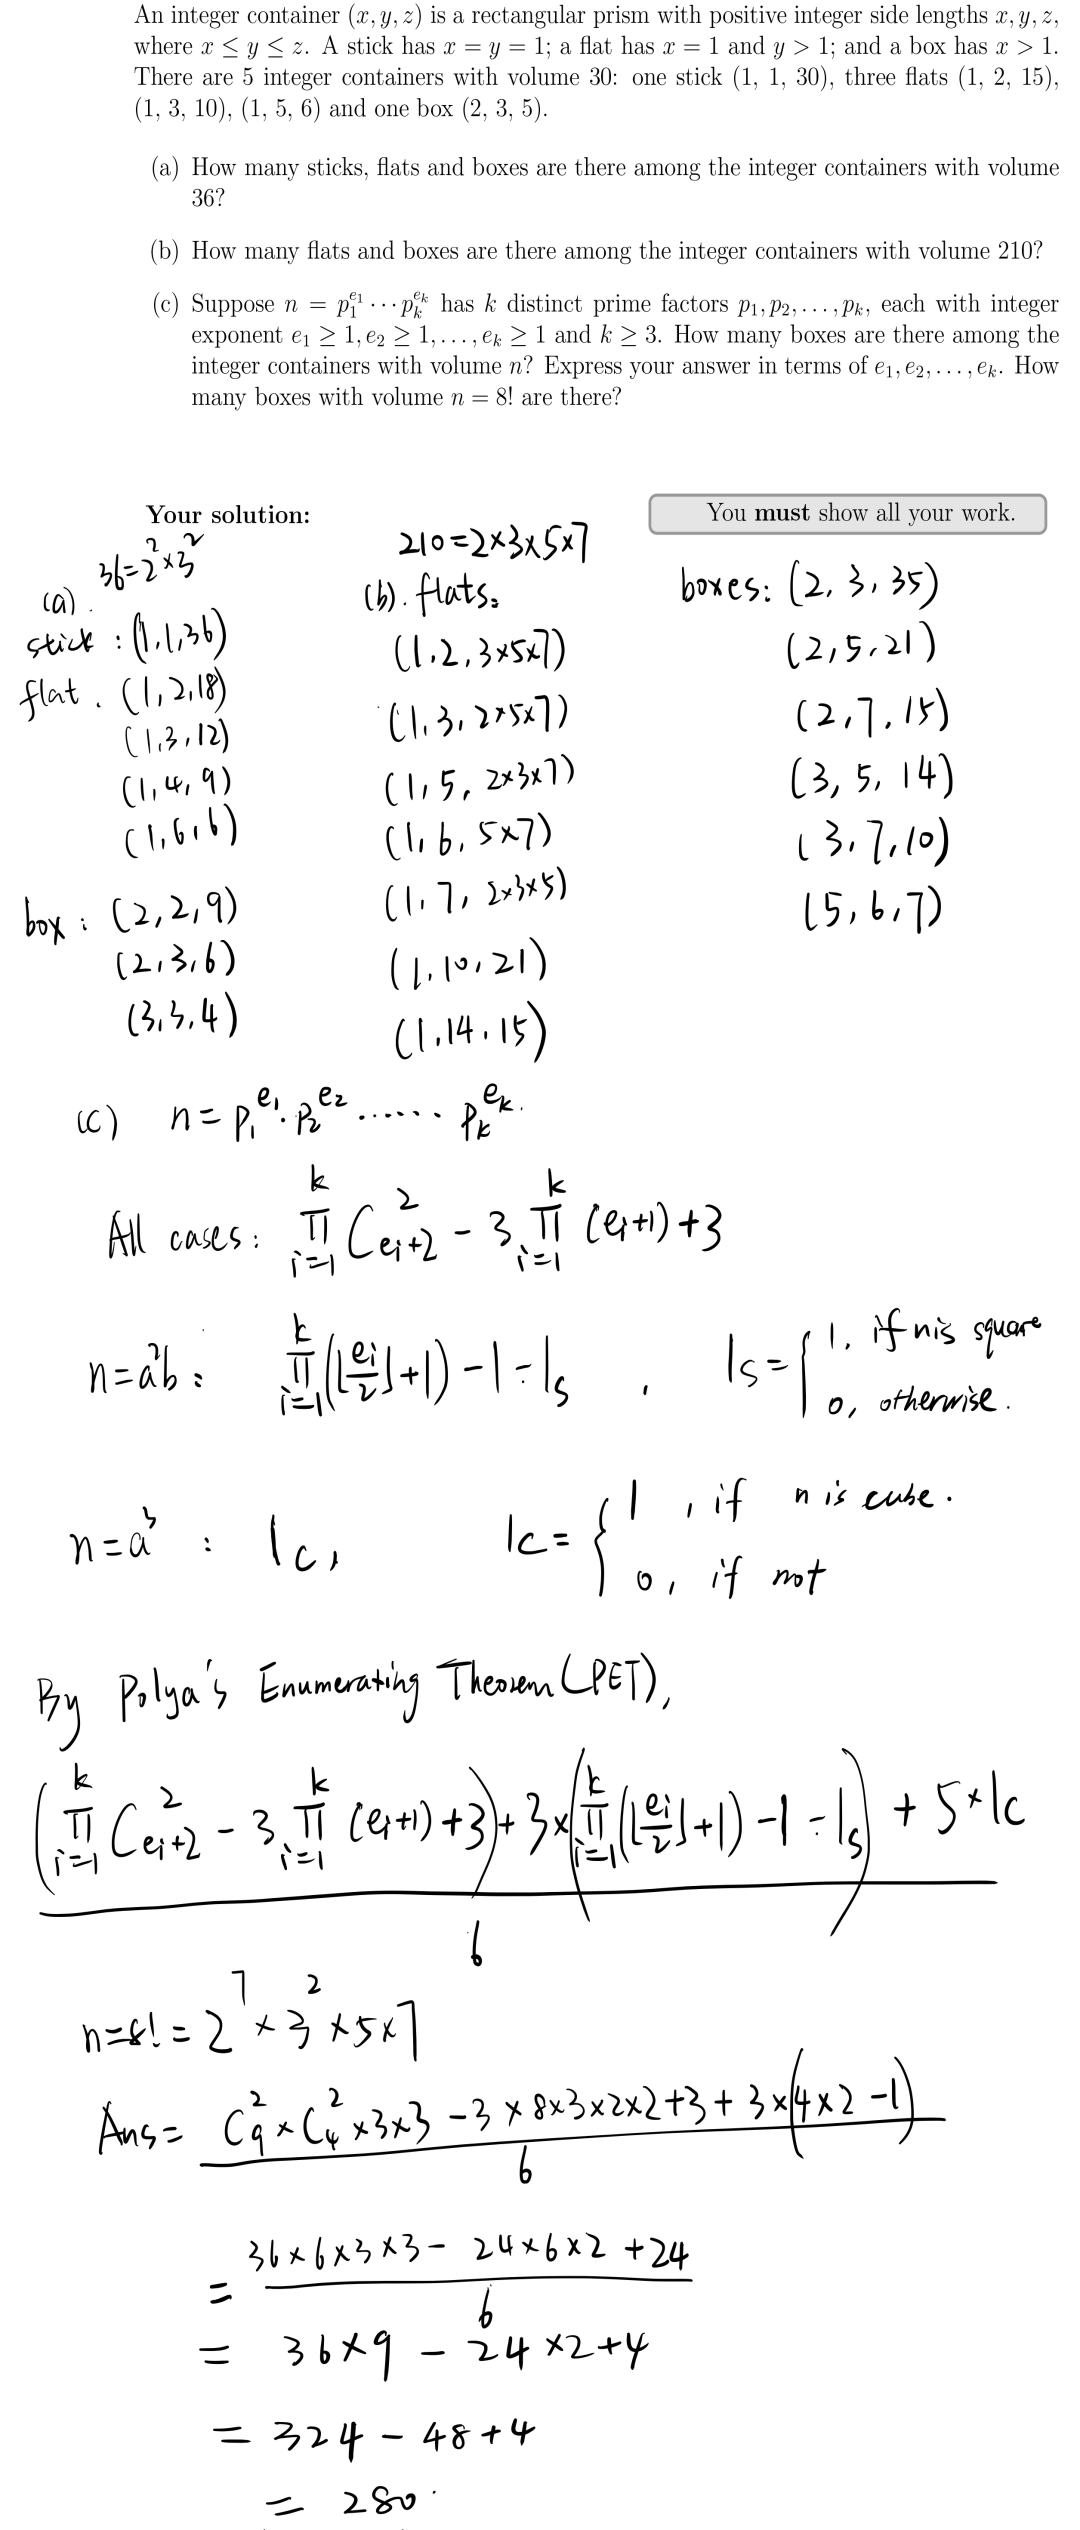 An integer container (x, y, z) is a rectangular prism with positive integer side lengths x, y, z,
where x ≤ y ≤ z. A stick has x = y = 1; a flat has x = 1 and y > 1; and a box has x > 1.
There are 5 integer containers with volume 30: one stick (1, 1, 30), three flats (1, 2, 15),
(1, 3, 10), (1, 5, 6) and one box (2, 3, 5).
(a) How many sticks, flats and boxes are there among the integer containers with volume
36?
(b) How many flats and boxes are there among the integer containers with volume 210?
(c) Suppose n = p_1^{e_1} ··· p_k^{e_k} has k distinct prime factors p_1, p_2, . . . , p_k, each with integer
exponent e_1 ≥ 1, e_2 ≥ 1, . . . , e_k ≥ 1 and k ≥ 3. How many boxes are there among the
integer containers with volume n? Express your answer in terms of e_1, e_2, . . . , e_k. How
many boxes with volume n = 8! are there?
Your solution:
You must show all your work.
36=2^2×3^2
(a).
stick : (1,1,36)
flat. (1,2,18)
(1,3,12)
(1,4,9)
(1,6,6)
box : (2,2,9)
(2,3,6)
(3,3,4)
210=2×3×5×7
(b). flats:
(1,2,3×5×7)
(1,3,2×5×7)
(1,5,2×3×7)
(1,6,5×7)
(1,7,2×3×5)
(1,10,21)
(1,14,15)
boxes: (2,3,35)
(2,5,21)
(2,7,15)
(3,5,14)
(3,7,10)
(5,6,7)
(c) n=p_1^{e_1}·p_2^{e_2}······p_k^{e_k}.
All cases: ∏_{i=1}^{k} C_{e_i+2}^{2} - 3∏_{i=1}^{k} (e_i+1)+3
n=a^2b : ∏_{i=1}^{k} (⌊e_i/2⌋+1) -1 - 1_S , 1_S = { 1, if n is square
0, otherwise.
n=a^3 : 1_C, 1_C = { 1, if n is cube.
0, if not
By Polya's Enumerating Theorem (PET),
((∏_{i=1}^{k} C_{e_i+2}^{2} - 3∏_{i=1}^{k} (e_i+1)+3) + 3×(∏_{i=1}^{k} (⌊e_i/2⌋+1) -1 - 1_S) + 5×1_C) / 6
n=8!=2^7×3^2×5×7
Ans= (C_9^2×C_4^2×3×3 - 3×8×3×2×2+3+3×(4×2-1)) / 6
= (36×6×3×3 - 24×6×2+24) / 6
= 36×9 - 24×2+4
= 324 - 48+4
= 280.